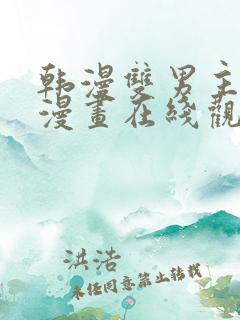 韩漫雙男主
漫畫在綫觀
洪浩
未经同意禁止转载